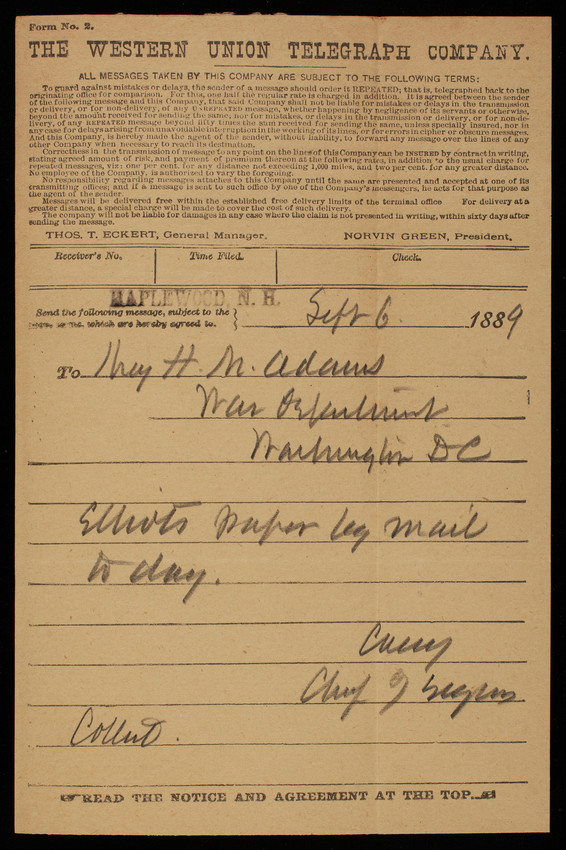 Form No. 2.
THE WESTERN UNION TELEGRAPH COMPANY.
ALL MESSAGES TAKEN BY THIS COMPANY ARE SUBJECT TO THE FOLLOWING TERMS:
To guard against mistakes or delays, the sender of a message should order it REPEATED; that is, telegraphed back to the
originating office for comparison. For this, one half the regular rate is charged in addition. It is agreed between the sender
of the following message and this Company, that said Company shall not be liable for mistakes or delays in the transmission
or delivery, or for non-delivery, of any UNREPEATED message, whether happening by negligence of its servants or otherwise,
beyond the amount received for sending the same; nor for mistakes, or delays in the transmission or delivery, or for non-de-
livery, of any REPEATED message beyond fifty times the sum received for sending the same, unless specially insured, nor in
any case for delays arising from unavoidable interruption in the working of its lines, or for errors in cipher or obscure messages.
And this Company, is hereby made the agent of the sender, without liability, to forward any message over the lines of any
other Company when necessary to reach its destination.
Correctness in the transmission of message to any point on the lines of this Company can be INSURED by contract in writing,
stating agreed amount of risk, and payment of premium thereon at the following rates, in addition to the usual charge for
repeated messages, viz: one per cent. for any distance not exceeding 1,000 miles, and two per cent. for any greater distance.
No employee of the Company, is authorized to vary the foregoing.
No responsibility regarding messages attaches to this Company until the same are presented and accepted at one of its
transmitting offices; and if a message is sent to such office by one of the Company's messengers, he acts for that purpose as
the agent of the sender.
Messages will be delivered free within the established free delivery limits of the terminal office For delivery at a
greater distance, a special charge will be made to cover the cost of such delivery.
The company will not be liable for damages in any case where the claim is not presented in writing, within sixty days after
sending the message.
THOS. T. ECKERT, General Manager. NORVIN GREEN, President.
Receiver's No. Time Filed. Check.
MAPLEWOOD, N. H.
Send the following message, subject to the
which are hereby agreed to. } Sept 6 1889
To H. M. Adams
War Department
Washington DC
Elliots paper by mail
to day.
Casey
Chief of Engrs
Collect.
READ THE NOTICE AND AGREEMENT AT THE TOP.